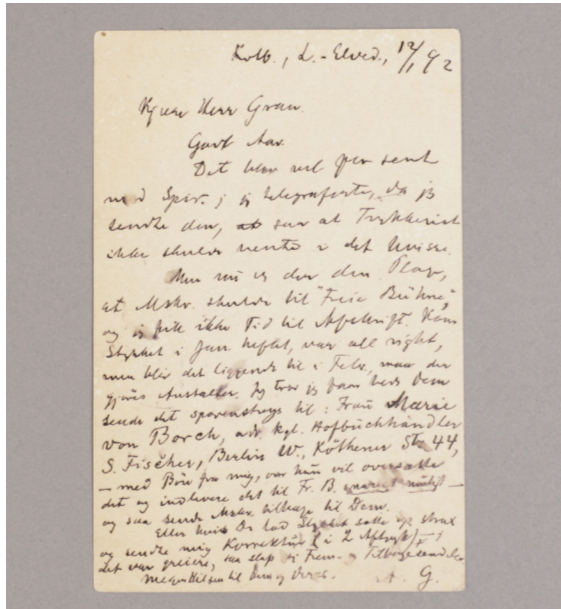 Kolb., L.-Elved., 12/1 92
Kjære Herr Gran.
Godt Aar.
Det blev vel for sent
med Spir.; jeg telegraferte, da jeg
sendte den, saa at Trykkeriet
ikke skulde vente i det Uvisse.
Men nu er der den Plage,
at Mskr. skulde til "Freie Bühne",
og jeg fik ikke Tid til Afskrift. Kom
Stykket i Jan. heftet, var all right,
men blir det liggende til i Febr., maa der
gjøres Anstalter. Jeg tror jeg faar bede Dem
sende det sporenstregs til: Frau Marie
von Borch, adr. kgl. Hofbuchhändler
S. Fischer, Berlin W., Köthener Str. 44,
— med Bøn fra mig, om hun vil oversætte
det og indlevere det til Fr. B. snarest muligt —
og saa sende Mskr. tilbage til Dem.
Eller hvis De lod Stykket sætte op strax
og sendte mig Korrektur (i 2 Aftryk)
det var greiere, saa slap vi Frem- og Tilbagesendelse
Megen Hilsen til Dem og Deres. A. G.